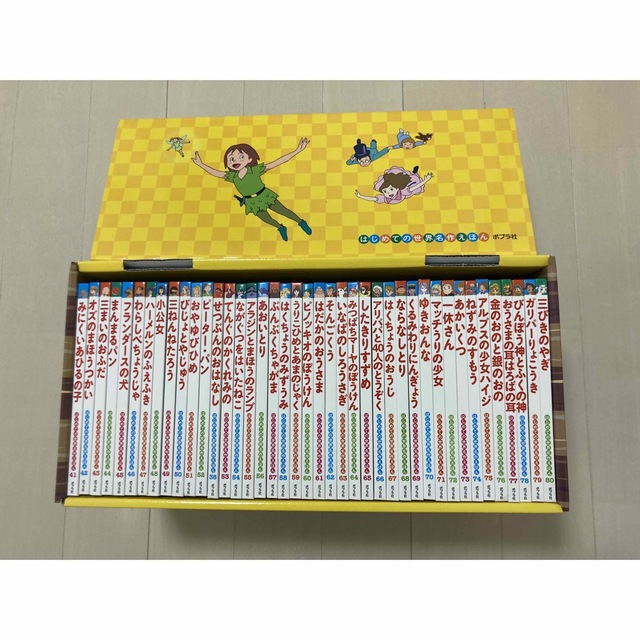 はじめての世界名作えほん ポプラ社
みにくいあひるの子
オズのまほうつかい
三まいのおふだ
まんまるパン
フランダースの犬
わらしべちょうじゃ
ハーメルンのふえふき
小公女
三ねんねたろう
びじょとやじゅう
おやゆびひめ
ピーター・パン
せつぶんのおはなし
てんぐのかくれみの
ながぐつをはいたねこ
アラジンとまほうのランプ
あおいとり
ぶんぶくちゃがま
はくちょうのみずうみ
うりこひめとあまのじゃく
ピノキオのぼうけん
はだかのおうさま
そんごくう
いなばのしろうさぎ
みつばちマーヤのぼうけん
したきりすずめ
アリババと40人のとうぞく
はくちょうのおうじ
ならなしとり
くるみわりにんぎょう
ゆきおんな
マッチうりの少女
一休さん
あかいくつ
ねずみのすもう
アルプスの少女ハイジ
金のおのと銀のおの
おうさまの耳はろばの耳
びんぼう神とふくの神
ガリバーりょこうき
三びきのやぎ
41 42 43 44 45 46 47 48 49 50 51 52
54 55 56 57 58 59 60 61 62 63 64 65 66 67 68 69 70 71 72 73 74 75 76 77 78 79 80